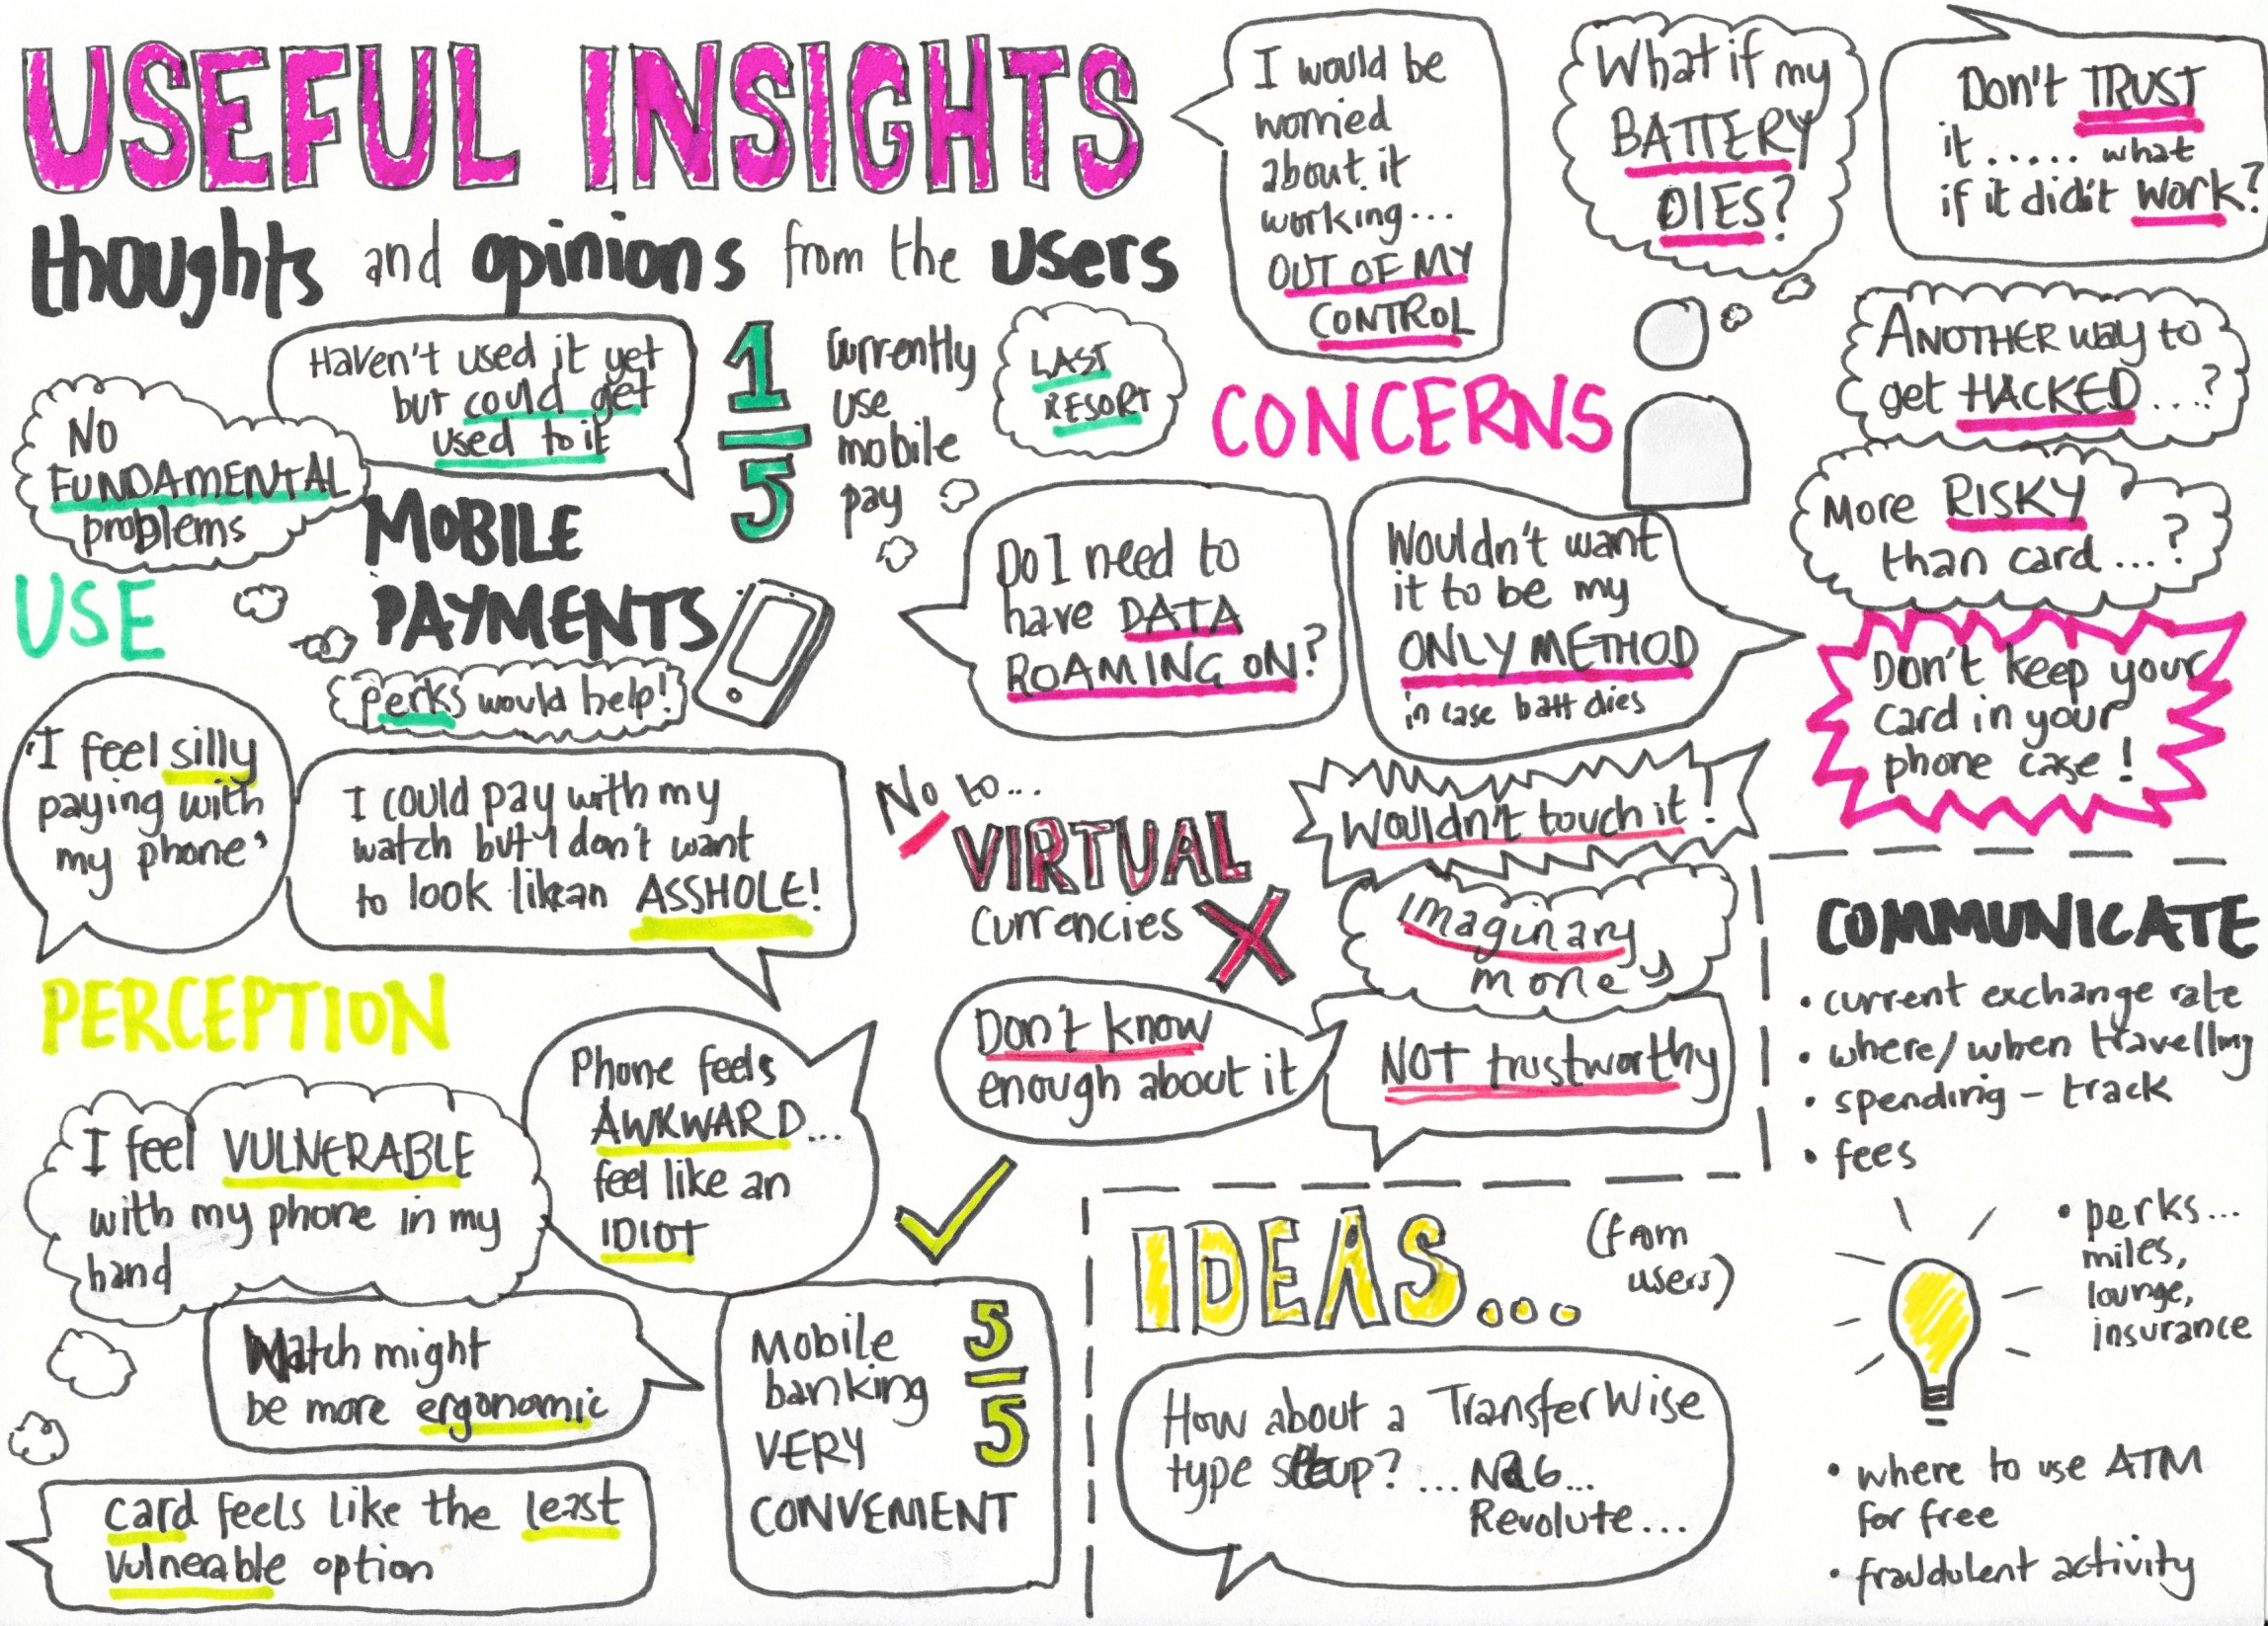 USEFUL INSIGHTS
thoughts and opinions from the users
Haven't used it yet
but could get
used to it
NO
FUNDAMENTAL
problems
1
5
Currently
use
mobile
pay
LAST
RESORT
USE
MOBILE
PAYMENTS
perks would help!
'I feel silly
paying with
my phone'
I could pay with my
watch but I don't want
to look like an ASSHOLE!
PERCEPTION
Phone feels
AWKWARD...
feel like an
IDIOT
I feel VULNERABLE
with my phone in my
hand
Watch might
be more ergonomic
card feels like the least
vulnerable option
Mobile
banking
VERY
CONVENIENT
5
5
I would be
worried
about it
working...
OUT OF MY
CONTROL
What if my
BATTERY
DIES?
Don't TRUST
it ..... what
if it didn't work?
CONCERNS
ANOTHER way to
get HACKED...?
More RISKY
than card...?
Do I need to
have DATA
ROAMING ON?
Wouldn't want
it to be my
ONLY METHOD
in case batt dies
Don't keep your
card in your
phone case!
No to...
VIRTUAL
currencies
Wouldn't touch it!
imaginary
money
Don't know
enough about it
NOT trustworthy
COMMUNICATE
• current exchange rate
• where/when travelling
• spending - track
• fees
• perks...
miles,
lounge,
insurance
• where to use ATM
for free
• fraudulent activity
IDEAS... (from
users)
How about a TransferWise
type setup? ... N26...
Revolute...